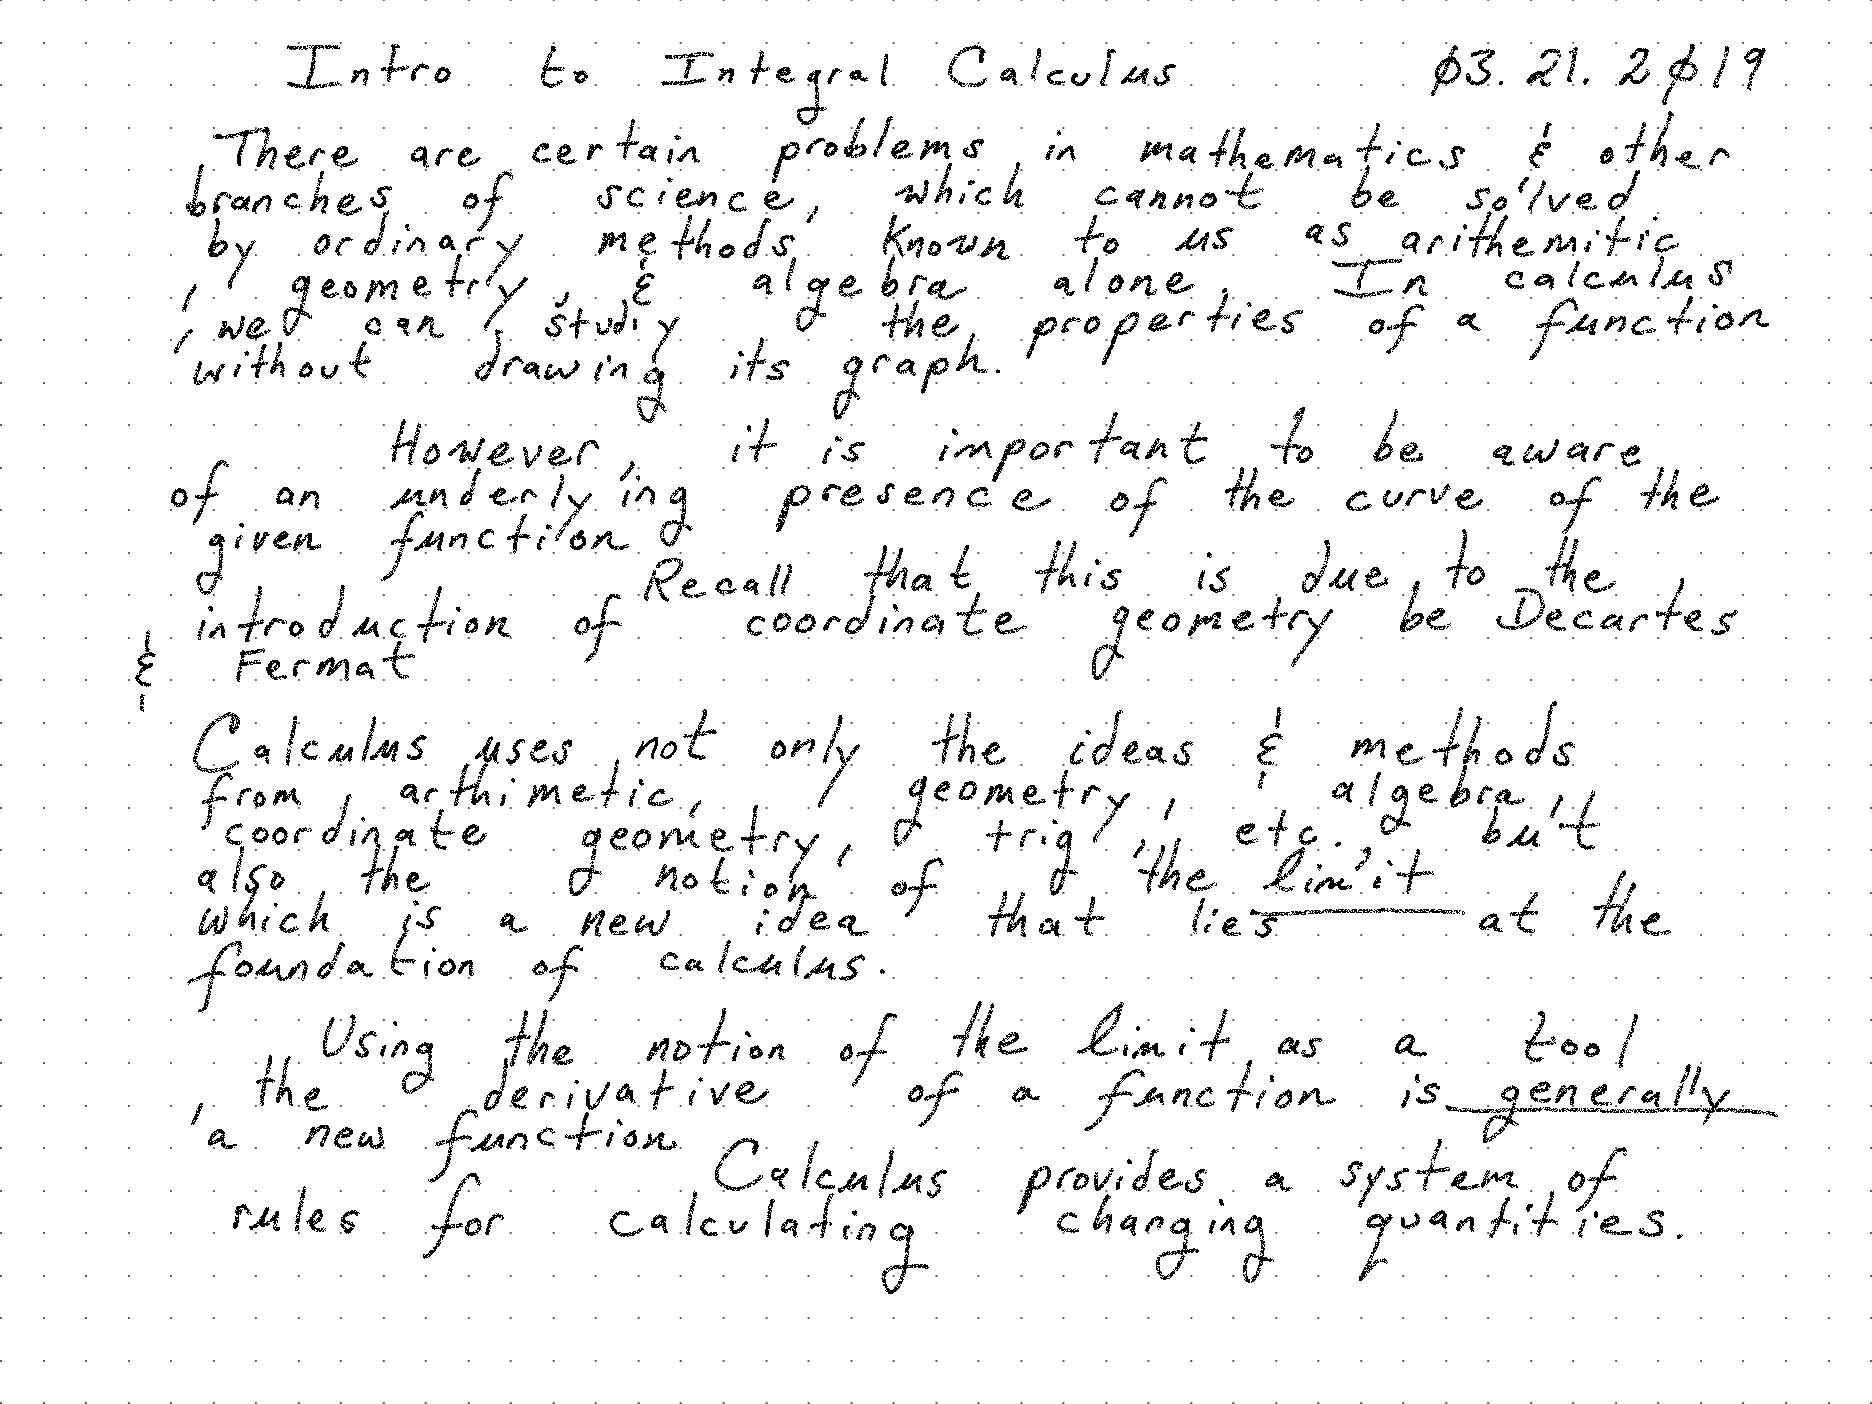 Intro to Integral Calculus 03.21.2019
There are certain problems in mathematics & other
branches of science, which cannot be solved
by ordinary methods known to us as arithemitic
, geometry, & algebra alone. In calculus
, we can study the properties of a function
without drawing its graph.
However, it is important to be aware
of an underlying presence of the curve of the
given function
Recall that this is due to the
introduction of coordinate geometry be Decartes
& Fermat
Calculus uses not only the ideas & methods
from arthimetic, geometry, algebra,
coordinate geometry, trig, etc., but
also the notion of the limit
which is a new idea that lies at the
foundation of calculus.
Using the notion of the limit as a tool
, the derivative of a function is generally
a new function
Calculus provides a system of
rules for calculating changing quantities.